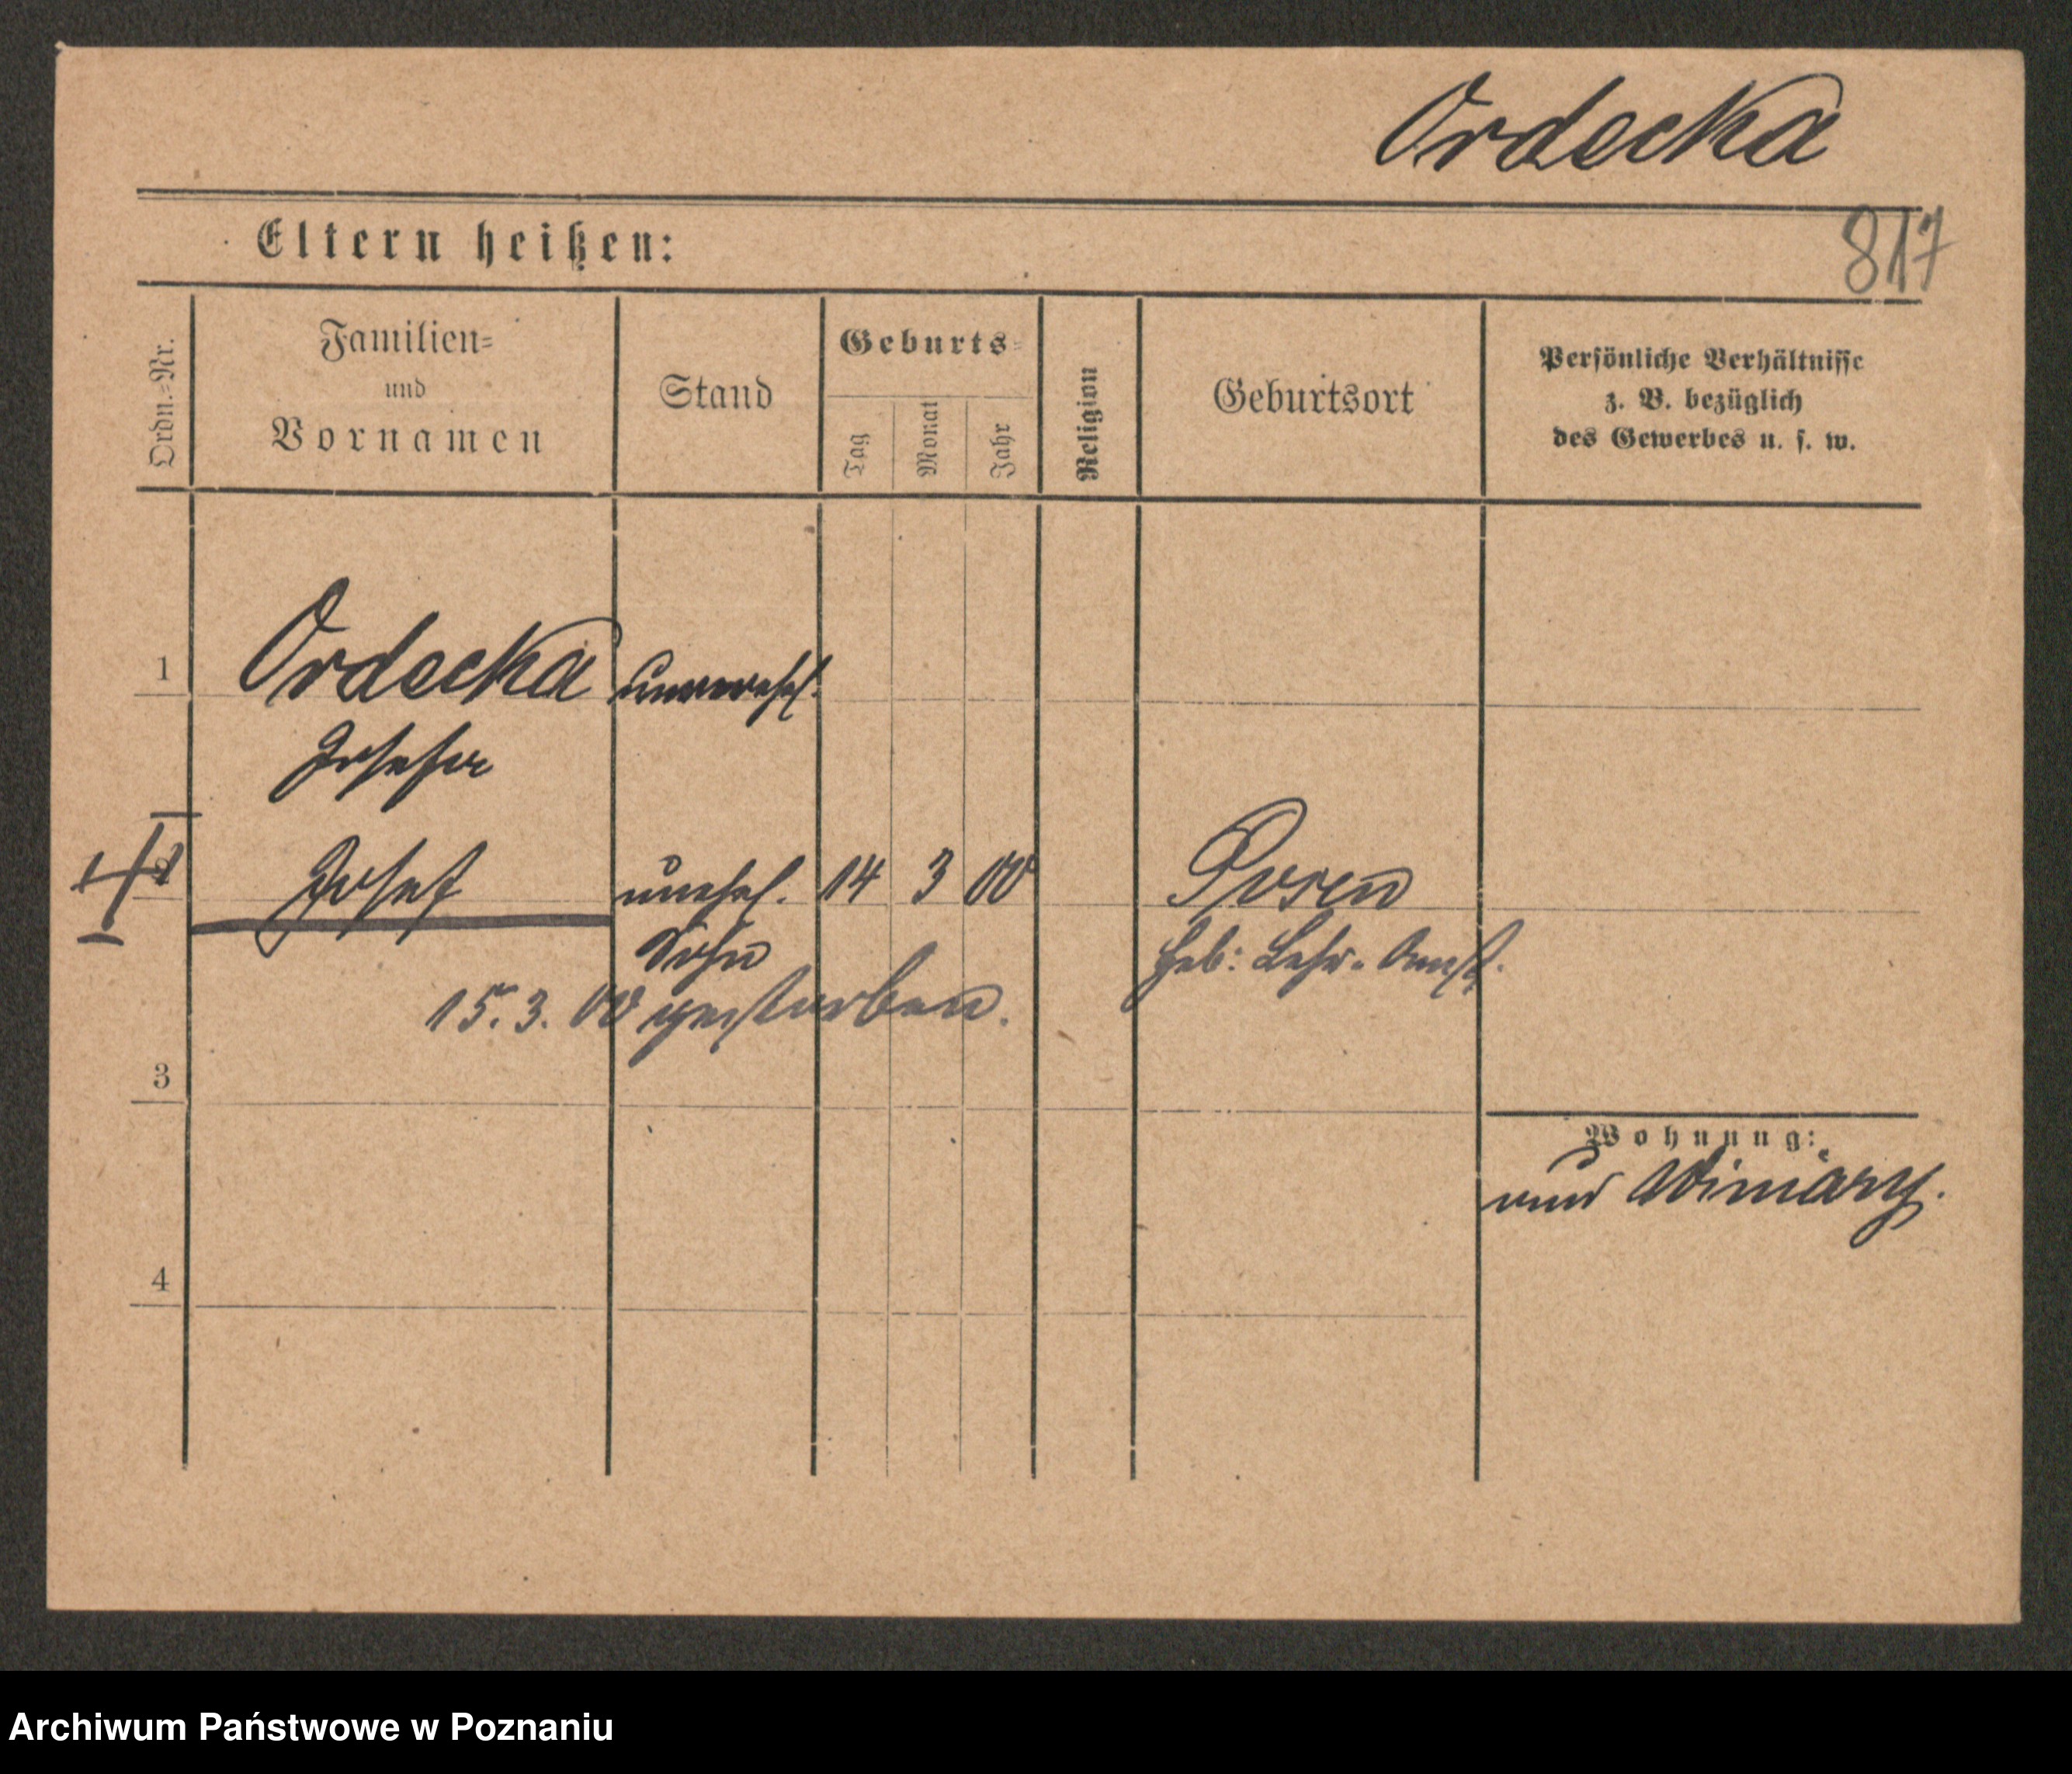 Ordecka
817
Eltern heißen:
Ordn.-Nr.
Familien-
und
Vornamen
Stand
Geburts-
Tag
Monat
Jahr
Religion
Geburtsort
Persönliche Verhältnisse
z. B. bezüglich
des Gewerbes u. s. w.
1
Ordecka unverehel.
Josefa
2
Josef unehel. 14 3 00 Posen
Sohn Heb: Lehr-Anst.
15.3.00 gestorben.
3
Wohnung:
Winiary.
4
Archiwum Państwowe w Poznaniu